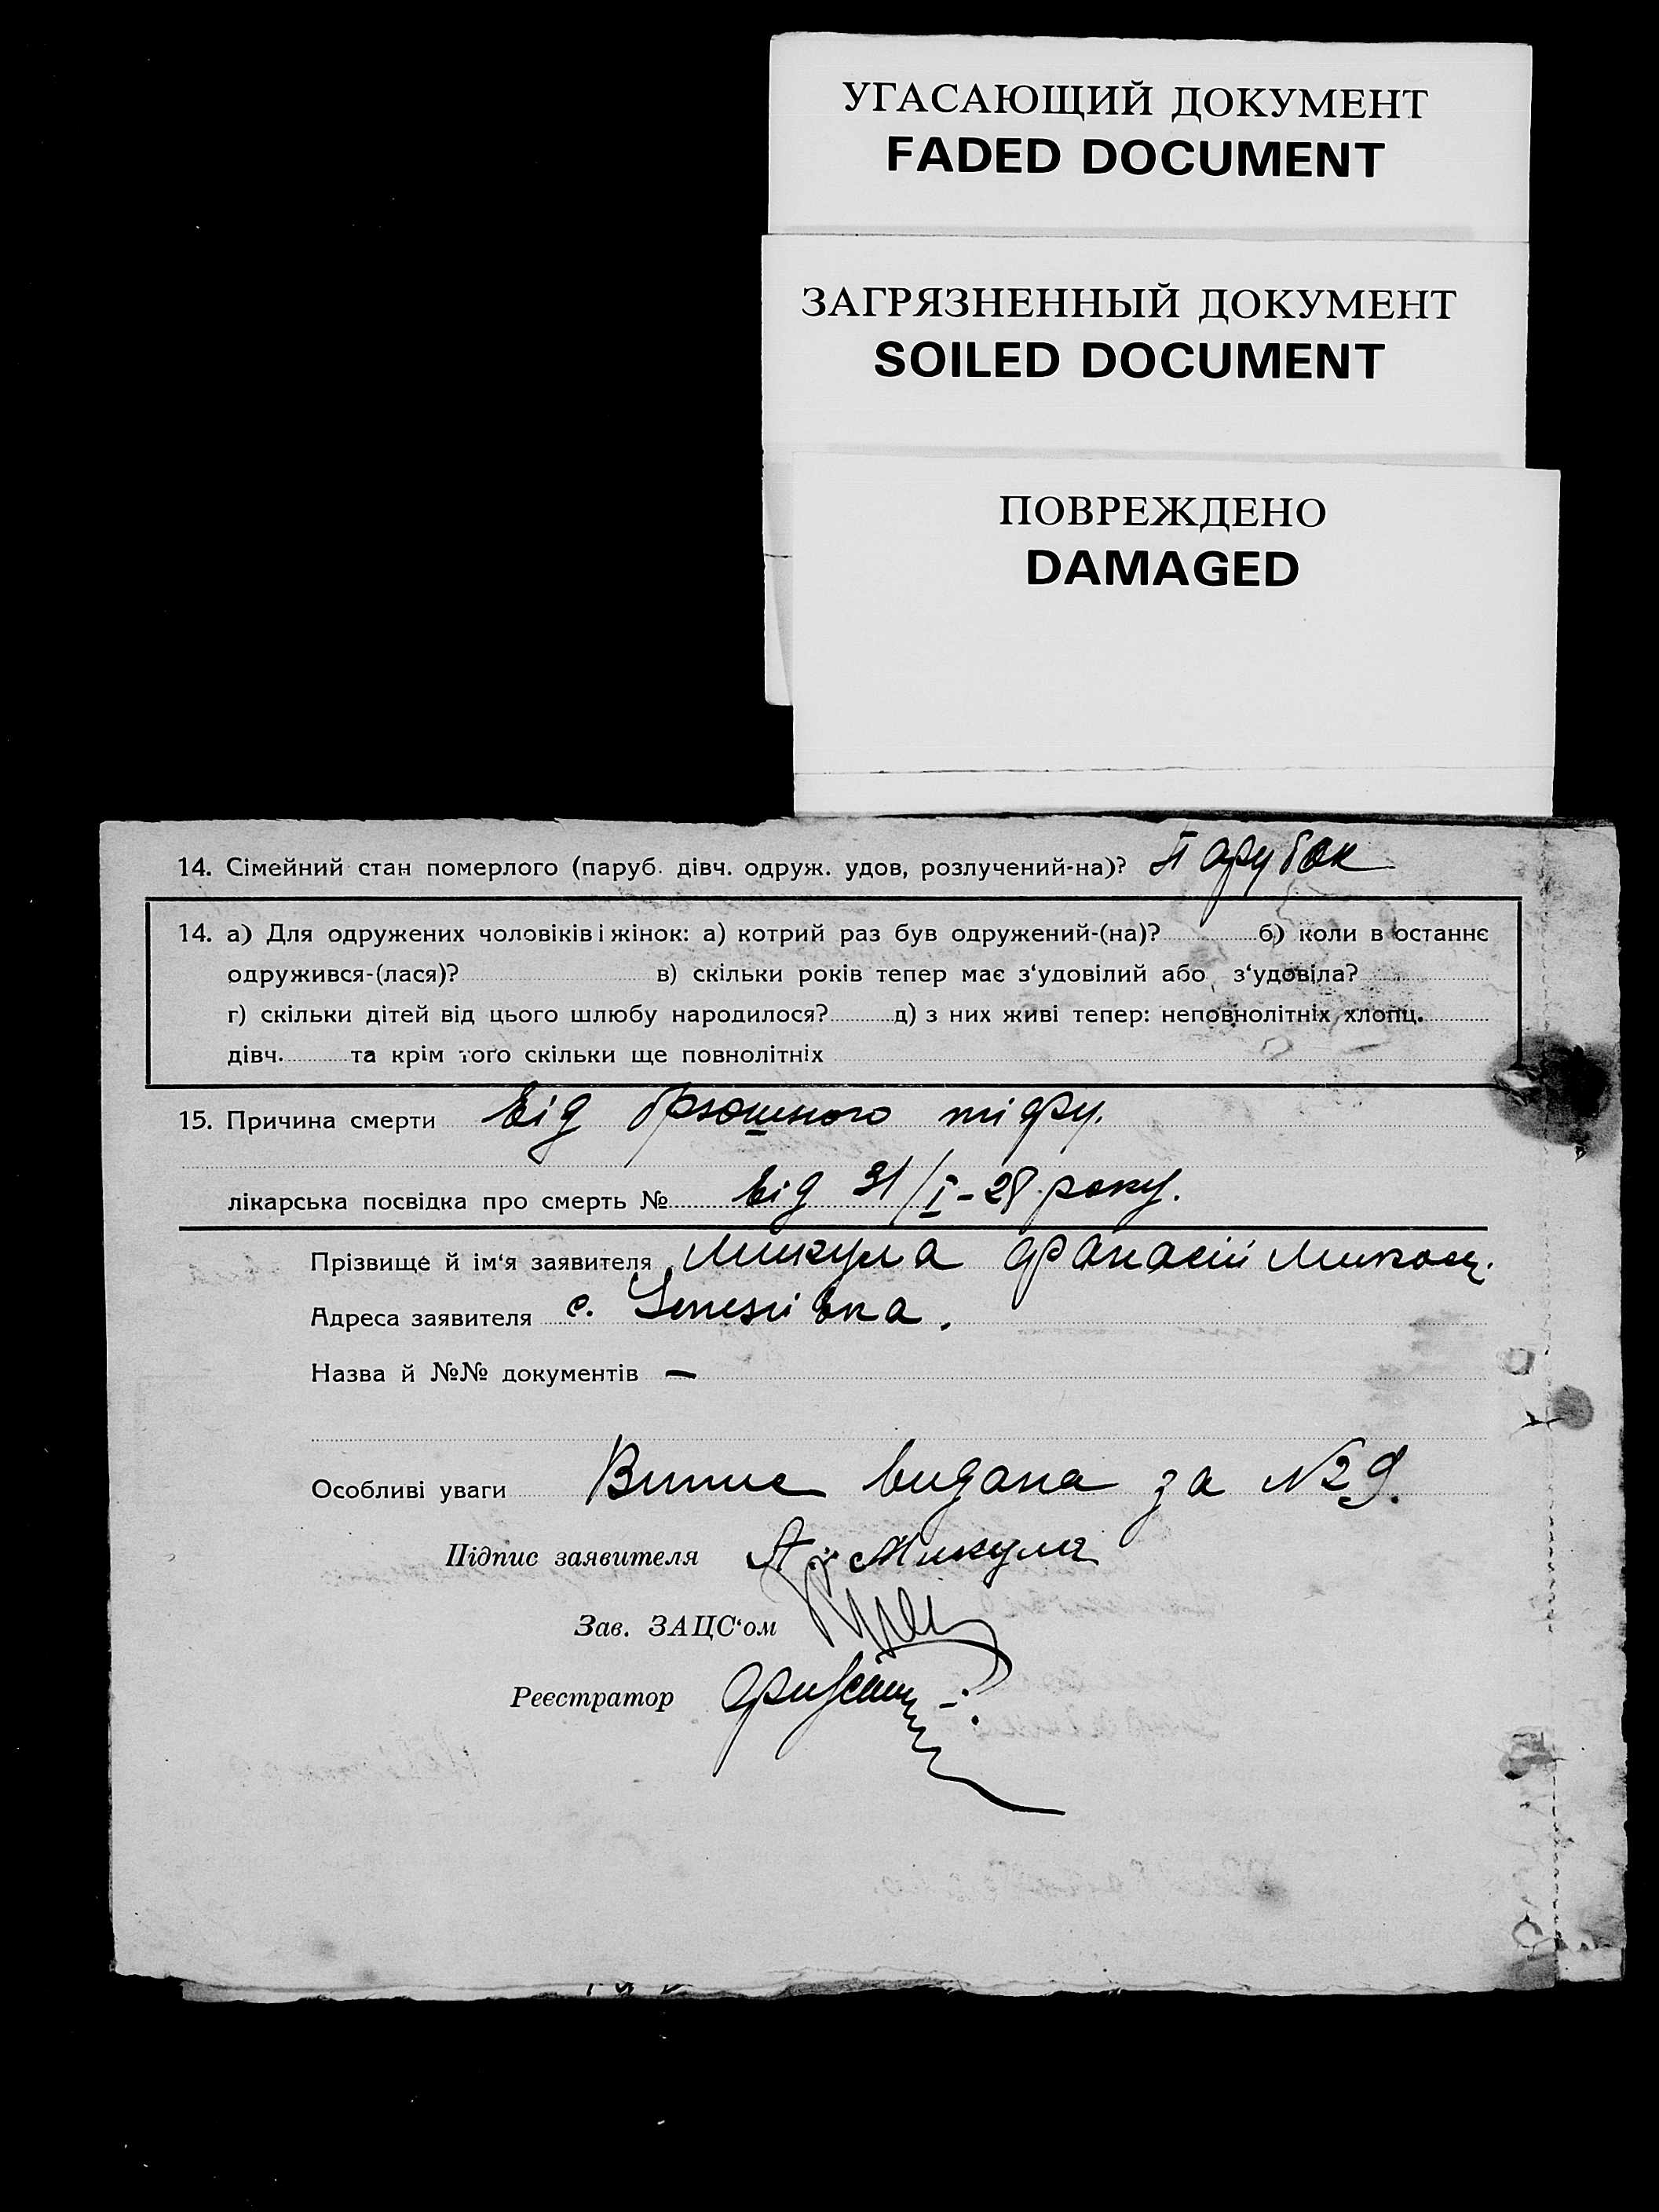 УГАСАЮЩИЙ ДОКУМЕНТ
FADED DOCUMENT
ЗАГРЯЗНЕННЫЙ ДОКУМЕНТ
SOILED DOCUMENT
ПОВРЕЖДЕНО
DAMAGED
14. Сімейний стан померлого (паруб. дівч. одруж. удов, розлучений-на)? Парубок
14. а) Для одружених чоловіків і жінок: а) котрий раз був одружений-(на)? б) коли в останнє
одружився-(лася)? в) скільки років тепер має з‘удовілий або з‘удовіла?
г) скільки дітей від цього шлюбу народилося? д) з них живі тепер: неповнолітніх хлопц.
дівч. та крім того скільки ще повнолітніх
15. Причина смерти від брюшного тіфу.
лікарська посвідка про смерть № від 31/I-28 року.
Прізвище й ім‘я заявителя Микула Афанасій
Адреса заявителя с.
Назва й №№ документів —
Особливі уваги Випис видана за №9.
Підпис заявителя А. Микула
Зав. ЗАЦС‘ом
Реєстратор